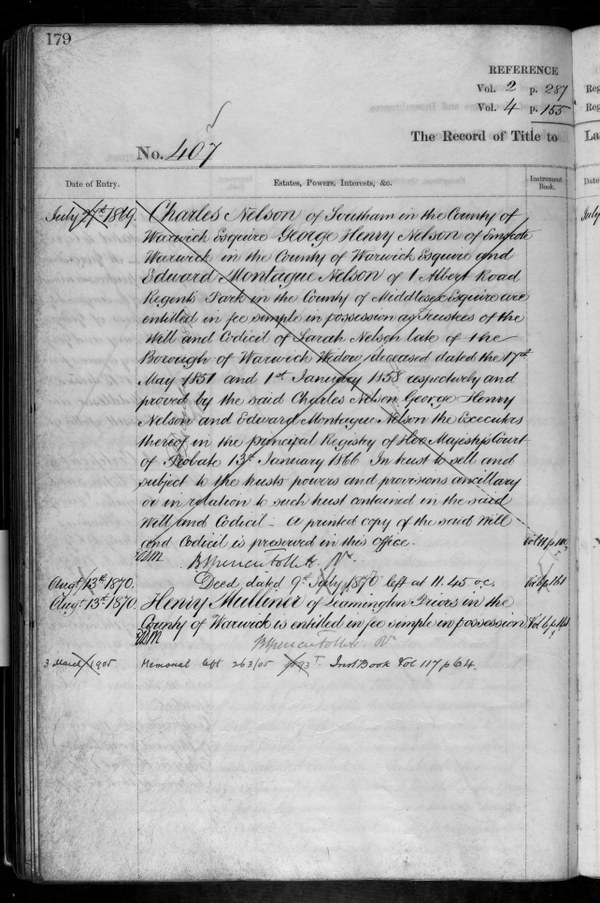 179
REFERENCE
Vol. 2 p. 287
Vol. 4 p. 155
The Record of Title to La
No. 407
Date of Entry. Estates, Powers, Interests, &c. Instrument Book.
July 27th 1869. Charles Nelson of Southam in the County of
Warwick Esquire George Henry Nelson of Emscote
Warwick in the County of Warwick Esquire and
Edward Montague Nelson of 1 Albert Road
Regents Park in the County of Middlesex Esquire are
entitled in fee simple in possession as Trustees of the
Will and Codicil of Sarah Nelson late of the
Borough of Warwick Widow deceased dated the 17th
May 1851 and 1st January 1858 respectively and
proved by the said Charles Nelson George Henry
Nelson and Edward Montague Nelson the Executors
thereof in the principal Registry of Her Majesty's Court
of Probate 13th January 1866 In trust to sell and
subject to the trusts powers and provisions ancillary
or in relation to such trust contained in the said
Will and Codicil - A printed copy of the said Will
and Codicil is preserved in this office.
Brent Spencer Follett
Augt 13th 1870. Deed dated 9th July 1870 left at 11.45 o.c.
Augt 13th 1870. Henry Mulliner of Leamington Priors in the
County of Warwick is entitled in fee simple in possession
3 March 1905 Memorial left 263/05 Inst Book Vol 117 p 64.